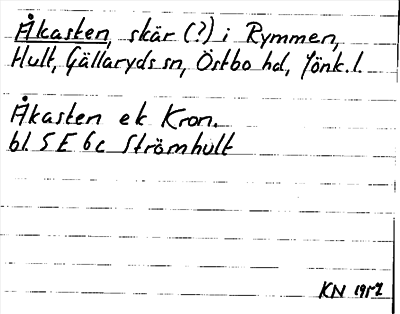 Åkasten, skär (?) i Rymmen,
Hult, Gällaryds sn, Östbo hd, Jönk. l.
Åkasten ek Kron.
bl 5 E 6 c Strömhult
KN 1957